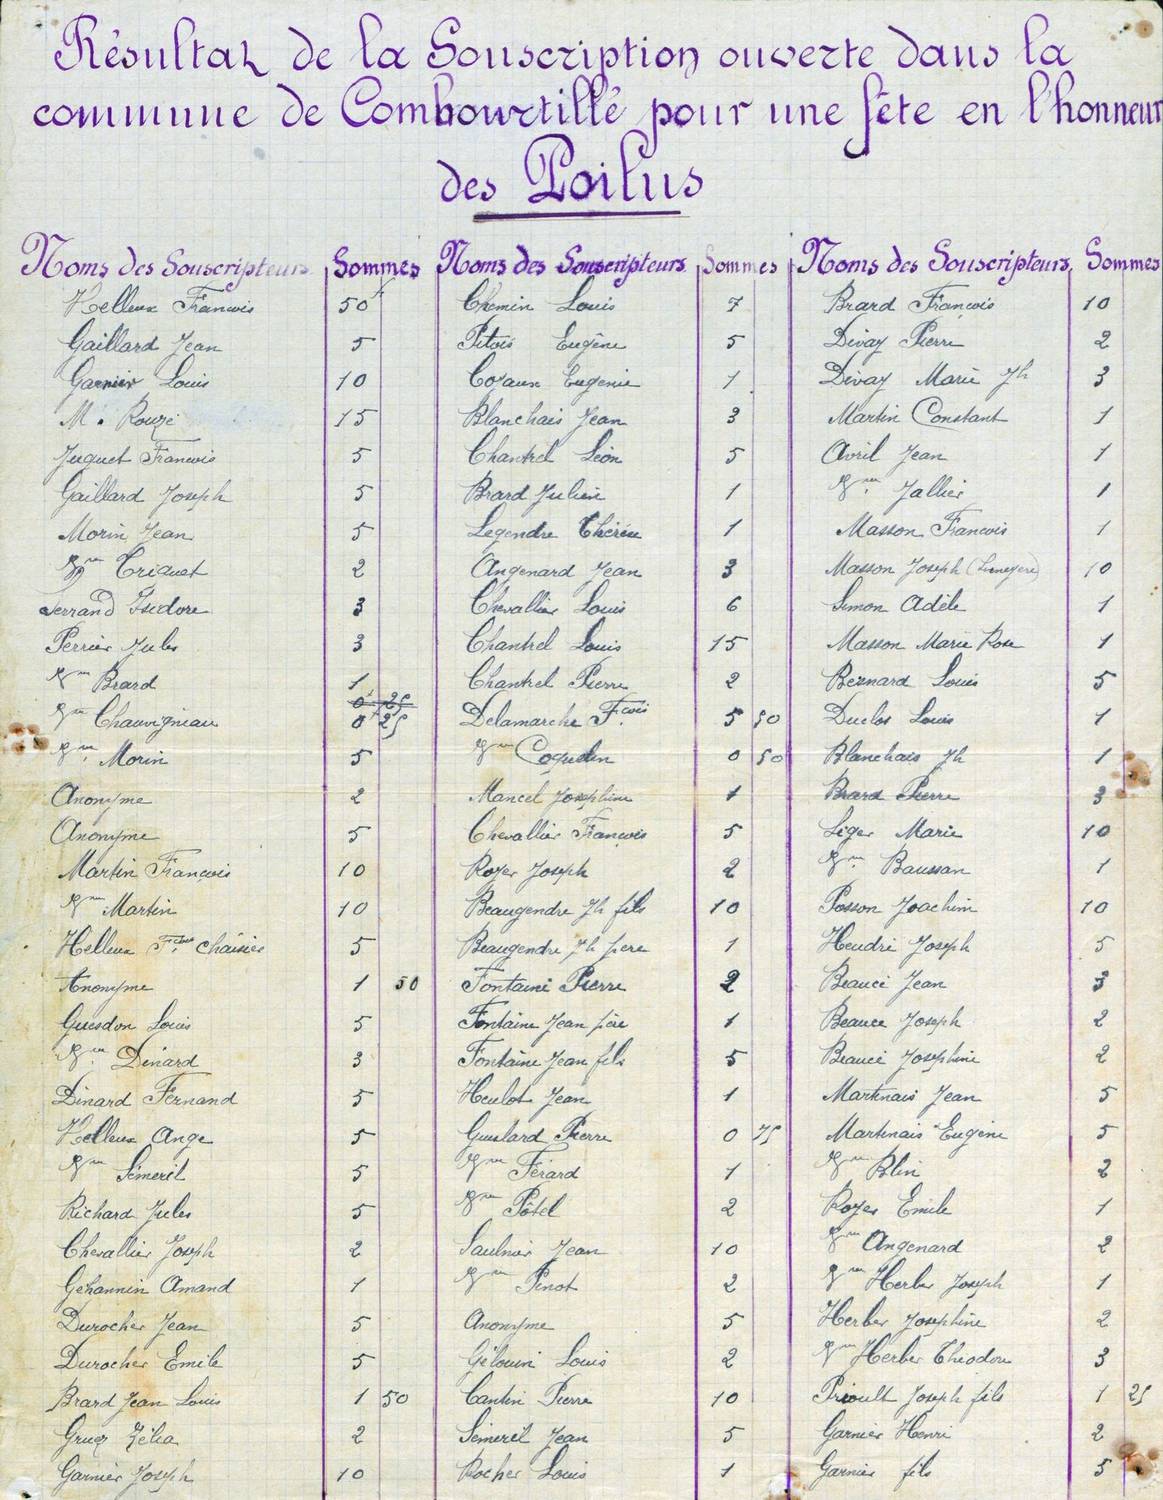 Résultat de la Souscription ouverte dans la
commune de Combourtillé pour une fête en l'honneur
des Poilus
Noms des Souscripteurs Sommes
Helleux Francois 50
Gaillard Jean 5
Garnier Louis 10
M. Rouzé 15
Juguet Francois 5
Gaillard Joseph 5
Morin Jean 5
Vve Criquet 2
Serrand Isidore 3
Perrier Jules 3
Vve Brard 1
0 25
Vve Chauvigneau 0 25
Vve Morin 5
Anonyme 2
Anonyme 5
Martin François 10
Vve Martin 10
Helleux Fcois chaisier 5
Anonyme 1 50
Guesdon Louis 5
Vve Dénard 3
Dénard Fernand 5
Helleux Ange 5
Vve Sémeril 5
Richard Jules 5
Chevallier Joseph 2
Géhannin Amand 1
Durocher Jean 5
Durocher Emile 5
Brard Jean Louis 1 50
Gruez Zélia 2
Garnier Joseph 10
Noms des Souscripteurs Sommes
Chemin Louis 7
Pitois Eugène 5
Cozaux Eugenie 1
Blanchais Jean 3
Chantrel Léon 5
Brard Julien 1
Legendre Thérèse 1
Angenard Jean 3
Chevallier Louis 6
Chantrel Louis 15
Chantrel Pierre 2
Delamarche Fcois 5 50
Vve Coquelin 0 50
Mancel Joséphine 1
Chevallier François 5
Royer Joseph 2
Beaugendre Jh fils 10
Beaugendre Jh père 1
Fontaine Pierre 2
Fontaine Jean père 1
Fontaine Jean fils 5
Heulot Jean 1
Guislard Pierre 0 75
Vve Férard 1
Vve Pôtel 2
Saulnier Jean 10
Vve Pinot 2
Anonyme 5
Gélouin Louis 2
Cantin Pierre 10
Sémeril Jean 5
Rocher Louis 1
Noms des Souscripteurs Sommes
Brard François 10
Divay Pierre 2
Divay Marie Jh 3
Martin Constant 1
Avril Jean 1
Vve Jallier 1
Masson Francois 1
Masson Joseph 10
Simon Adèle 1
Masson Marie Rose 1
Besnard Louis 5
Duclos Louis 1
Blanchais Jh 1
Brard Pierre 3
Léger Marie 10
Vve Baussan 1
Posson Joachim 10
Heudré Joseph 5
Beaucé Jean 3
Beaucé Joseph 2
Beaucé Joséphine 2
Martinais Jean 5
Martinais Eugène 5
Vve Blin 2
Royer Emile 1
Vve Angenard 2
Vve Herber Joseph 1
Herber Joséphine 2
Vve Herber Théodore 3
Prioult Joseph fils 1 25
Garnier Henri 2
Garnier fils 5